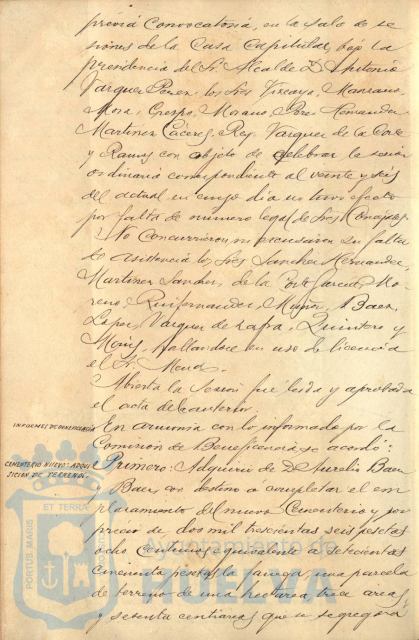 prévia Convocatoria, en la Sala de se
siones de la Casa Capitular, bajo la
presidencia del Sr. Alcalde D. Antonio
Vazquez Perez, los Sres Vizcaya, Manzano,
Mora, Crespo, Morano, Perez Hernandez
Martinez Cáceres, Rey, Vazquez de la Corte
y Ramos con objeto de celebrar la sesión
ordinaria correspondiente al veinte y seis
del actual en cuyo dia no tuvo efecto
por falta de número legal de Sres Concejales.
No concurrieron, ni excusaron su falta
de asistencia los Sres Sanchez Hernandez,
Martinez Sanchez, de la Corte Garcia, Mo-
reno, Ruifernandez, Muñoz, Baez,
Lopez, Vazquez de Zafra, Quintero y
hallandose en uso de licencia
el Sr.
Abierta la Sesion fué leida y aprobada
el acta de la anterior.
INFORMES DE BENEFICENCIA
En armonia con lo informado por la
Comision de Beneficencia, se acordó:
CEMENTERIO NUEVO: ADQUI
SICION DE TERRENO.
Primero: Adquirir de D. Aurelio Baez
y Baez con destino á completar el em
plazamiento del nuevo Cementerio y por
precio de dos mil trescientas seis pesetas
ocho centimos equivalente a setecientas
cincuenta pesetas la fanega, una parcela
de terreno de una hectarea, trece areas
y setenta centiareas que se segregará
PORTUS MARIS
ET TERRÆ
Ayuntamiento de
HUELVA